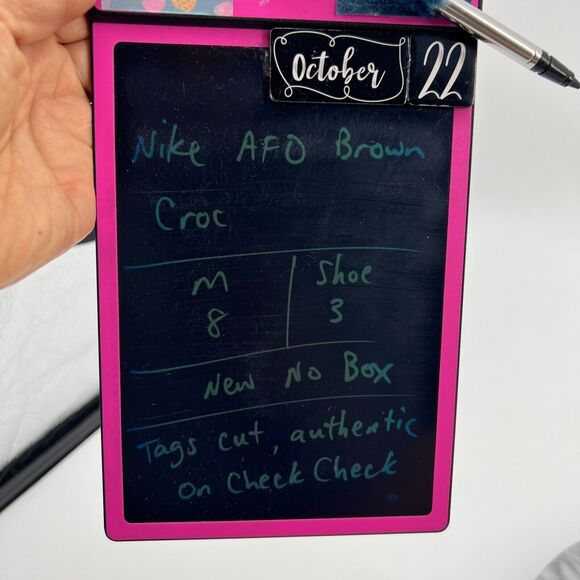 October 22
Nike AFO Brown
Croc
M Shoe
8 3
New No Box
Tags cut, authentic
on Check Check